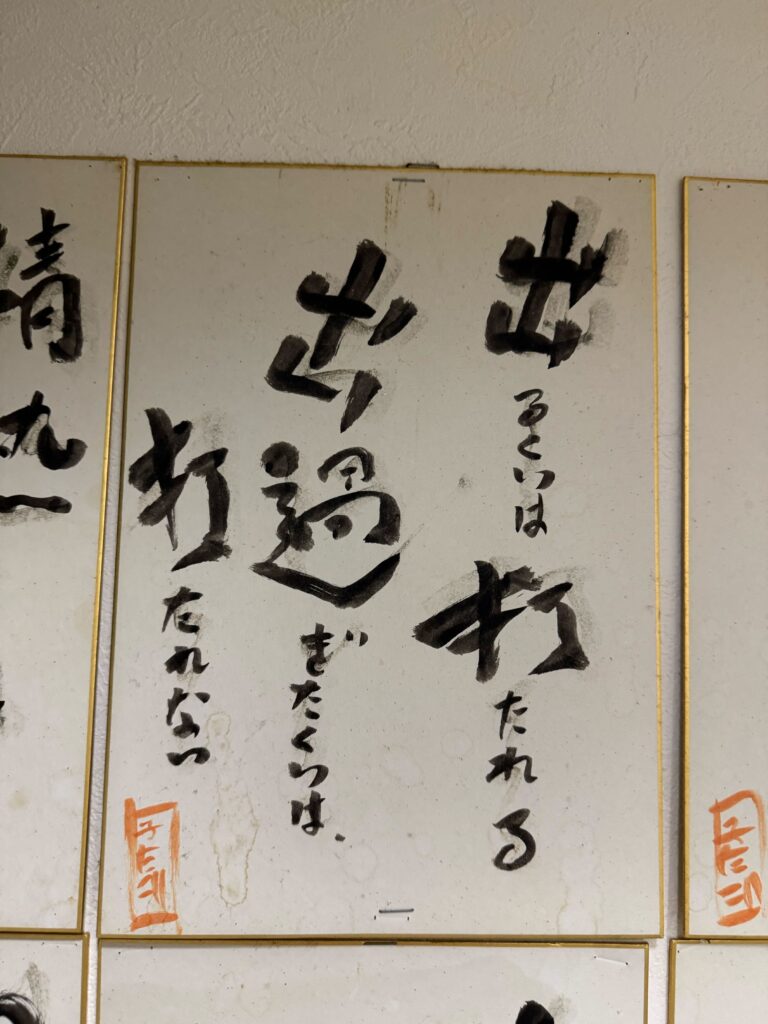 出るくいは打たれる
出過ぎたくいは、
打たれない
情熱